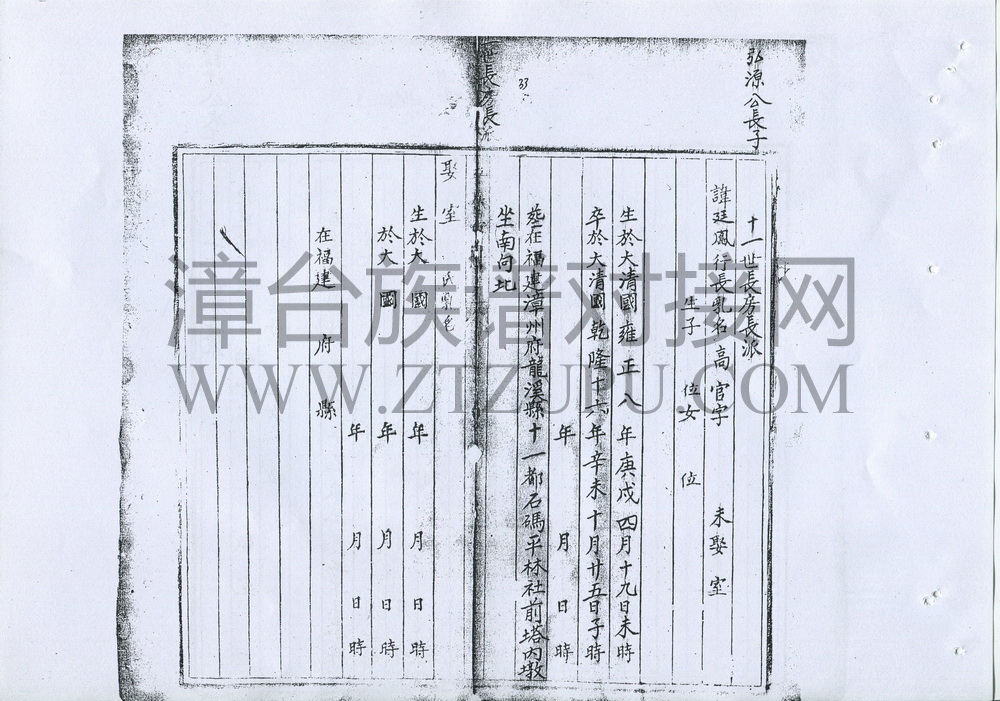 弘源公長子
十一世長房長派
諱廷鳳行長乳名高官字 未娶室
生子 位女 位
生於大清國雍正八年庚戌四月十九日未時
卒於大清國乾隆十六年辛未十月廿五日子時
年 月 日 時
塟在福建漳州府龍溪縣十一都石碼平林社前塔內墩
坐南向北
33
世長房長派
娶室 氏
生於大 國 年 月 日 時
於大 國 年 月 日 時
年 月 日 時
在福建 府 縣
漳台族谱对接网
WWW.ZTZUPU.COM